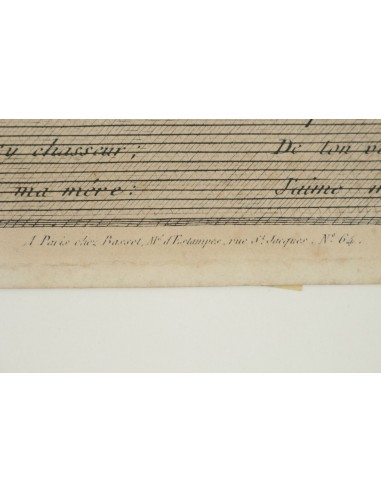 y chasseur;
De ton
ma mére:
J'aime
A Paris chez Basset, Md. d'Estampes, rue St. Jacques, No. 64.